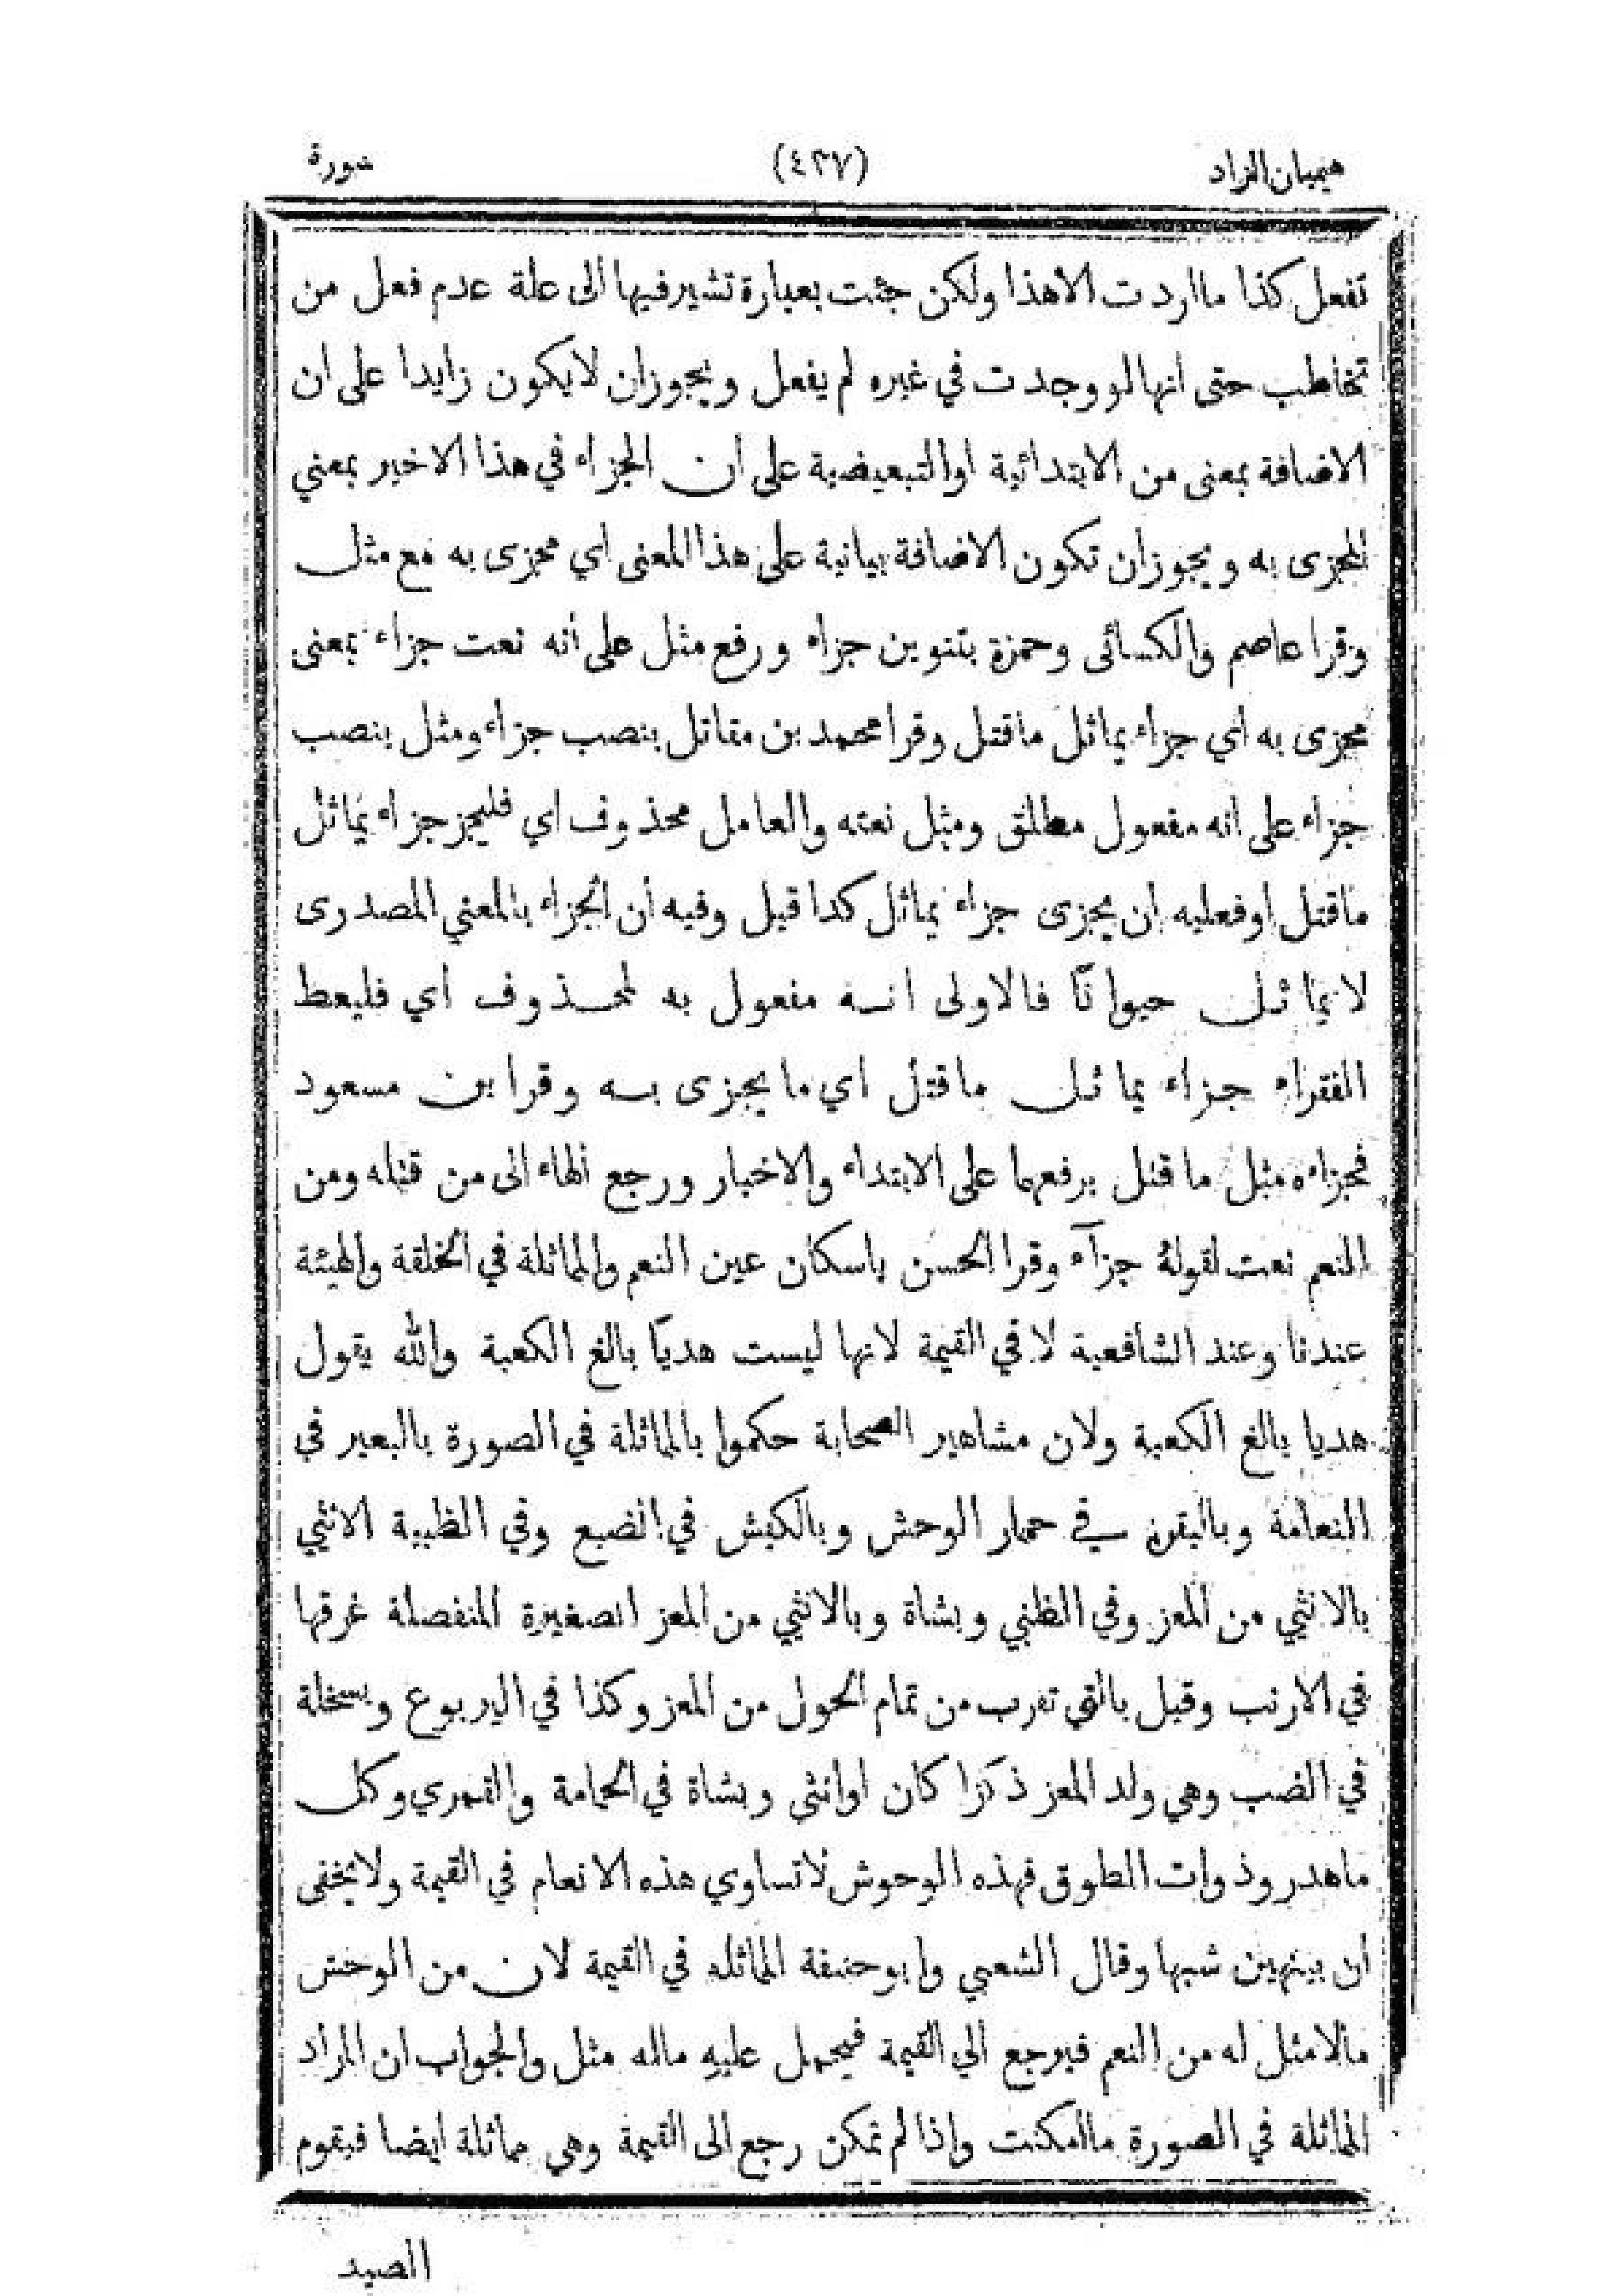 هيميان الزاد (٤٣٧) سورة
تفعل كذا ما اردت الا هذا ولكن جئت بعبارة تشير فيها الى علة عدم فعل من
تخاطب حتى انها لو وجدت في غيره لم يفعل ويجوز ان لا يكون زايدا على ان
الاضافة بمعنى من الابتدائية او التبعيضية على ان الجزاء في هذا الاخير بمعني
المجزى به ويجوز ان تكون الاضافة بيانية على هذا المعنى اي مجزى به مع مثل
وقرا عاصم والكسائى وحمزة بتنوين جزاء ورفع مثل على أنه نعت جزاء بمعنى
مجزى به أي جزاء يماثل ما قتل وقرا محمد بن مقاتل بنصب جزاء ومثل بنصب
جزاء على انه مفعول مطلق ومثل نعته والعامل محذوف اي فليجز جزاء يماثل
ما قتل او فعليه ان يجزى جزاء يماثل كدا قيل وفيه أن الجزاء بالمعني المصدرى
لا يماثل حيوانا فالاولى انه مفعول به لمحذوف أي فليعط
الفقراء جزاء يماثل ما قتل اي ما يجزى به وقرا بن مسعود
فجزاءه مثل ما قتل برفعهما على الابتداء والاخبار ورجع الهاء الى من قتله ومن
النعم نعت لقوله جزآء وقرا الحسن باسكان عين النعم والماثلة في الخلقة والهيئة
عندنا وعند الشافعية لا في القيمة لانها ليست هديا بالغ الكعبة والله يقول
هديا بالغ الكعبة ولان مشاهير الصحابة حكموا بالماثلة في الصورة بالبعير في
النعامة وبالبقرة في حمار الوحش وبالكبش في الضبع وفي الظبية الانثي
بالانثي من المعز وفي الظبي وبشاة وبالانثي من المعز الصغيرة المنفصلة عرقها
في الارنب وقيل بالتي تقرب من تمام الحول من المعز وكذا في اليربوع وبسخلة
في الضب وهي ولد المعز ذكرا كان او انثى وبشاة في الحمامة والقمري وكل
ما هدر وذوات الطوق فهذه الوحوش لا تساوي هذه الانعام في القيمة ولا يخفى
أن بينهن شبها وقال الشعبي وابو حنيفة الماثله في القيمة لان من الوحش
مالا مثل له من النعم فيرجع الي القيمة فيحمل عليه ماله مثل والجواب ان المراد
الماثلة في الصورة ما امكنت واذا لم تمكن رجع الى القيمة وهي مماثلة ايضا فيقوم
الصيد